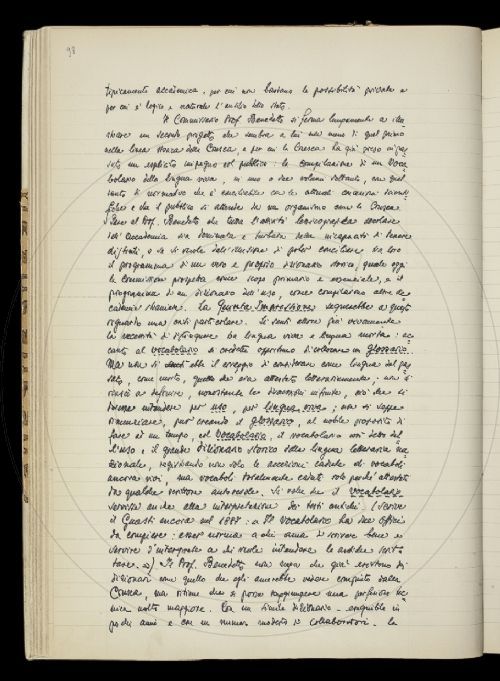 98
tipicamente accademica, per cui non bastano le possibilità private e
per cui è logico e naturale l'ausilio dello stato.
Il Commissario Prof. Benedetto si ferma lungamente a illu
strare un secondo progetto che sembra a lui non meno di quel primo
nella linea storica della Crusca, e per cui la Crusca ha già preso in pas
sato un esplicito impegno col pubblico: la compilazione di un Voca
bolario della lingua viva, in uno o due volumi soltanto, con quel
tanto di normativo che è conciliabile con le attuali esigenze scienti
fiche e che il pubblico si attende da un organismo come la Crusca.
Pare al Prof. Benedetto che tutta l'attività lessicografica secolare
dell'accademia sia dominata e turbata dalla incapacità di tenere
distinti, o se si vuole dall'illusione di poter conciliare tra loro
il programma di un vero e proprio dizionario storico, quale oggi
la Commissione prospetta come scopo primario e essenziale, e il
programma di un dizionario dell'uso, come compilazione altre ac
cademie straniere. La Quinta Impressione segnerebbe a questo
riguardo una crisi particolare. Si sentì allora più vivamente
la necessità di distinguere tra lingua viva e lingua morta: ac
canto al vocabolario si credette opportuno di collocare un glossario.
Ma non si ebbe il coraggio di considerare come lingua del pas
sato, come morta, quella che era attestata letterariamente; non si
riuscì a definire, nonostante le discussioni infinite, ciò che si
doveva intendere per uso, per lingua viva; non si seppe
rinunciare, pur creando il glossario, al nobile proposito di
fare ad un tempo, col Vocabolario, il vocabolario vero della del
l'uso, il grande dizionario storico della lingua letteraria na
zionale, registrando non solo le accezioni cadute di vocaboli
ancora vivi, ma vocaboli totalmente caduti solo perché attestati
da qualche scrittore autorevole. Si volle che il vocabolario
servisse anche alla interpretazione dei testi antichi. (Scrive
il Guasti ancora nel 1887: « Il Vocabolario ha due offici
da compiere: esser norma a chi ama di scrivere bene e
servire d'interprete a chi vuole intendere le antiche scrit
ture. ») Il Prof. Benedetto non nega che già esistono dei
dizionari come quello che egli amerebbe vedere compiuto dalla
Crusca, ma ritiene che si possa raggiungere una perfezione tec
nica molto maggiore. Con un simile dizionario - eseguibile in
pochi anni e con un numero modesto di collaboratori - la